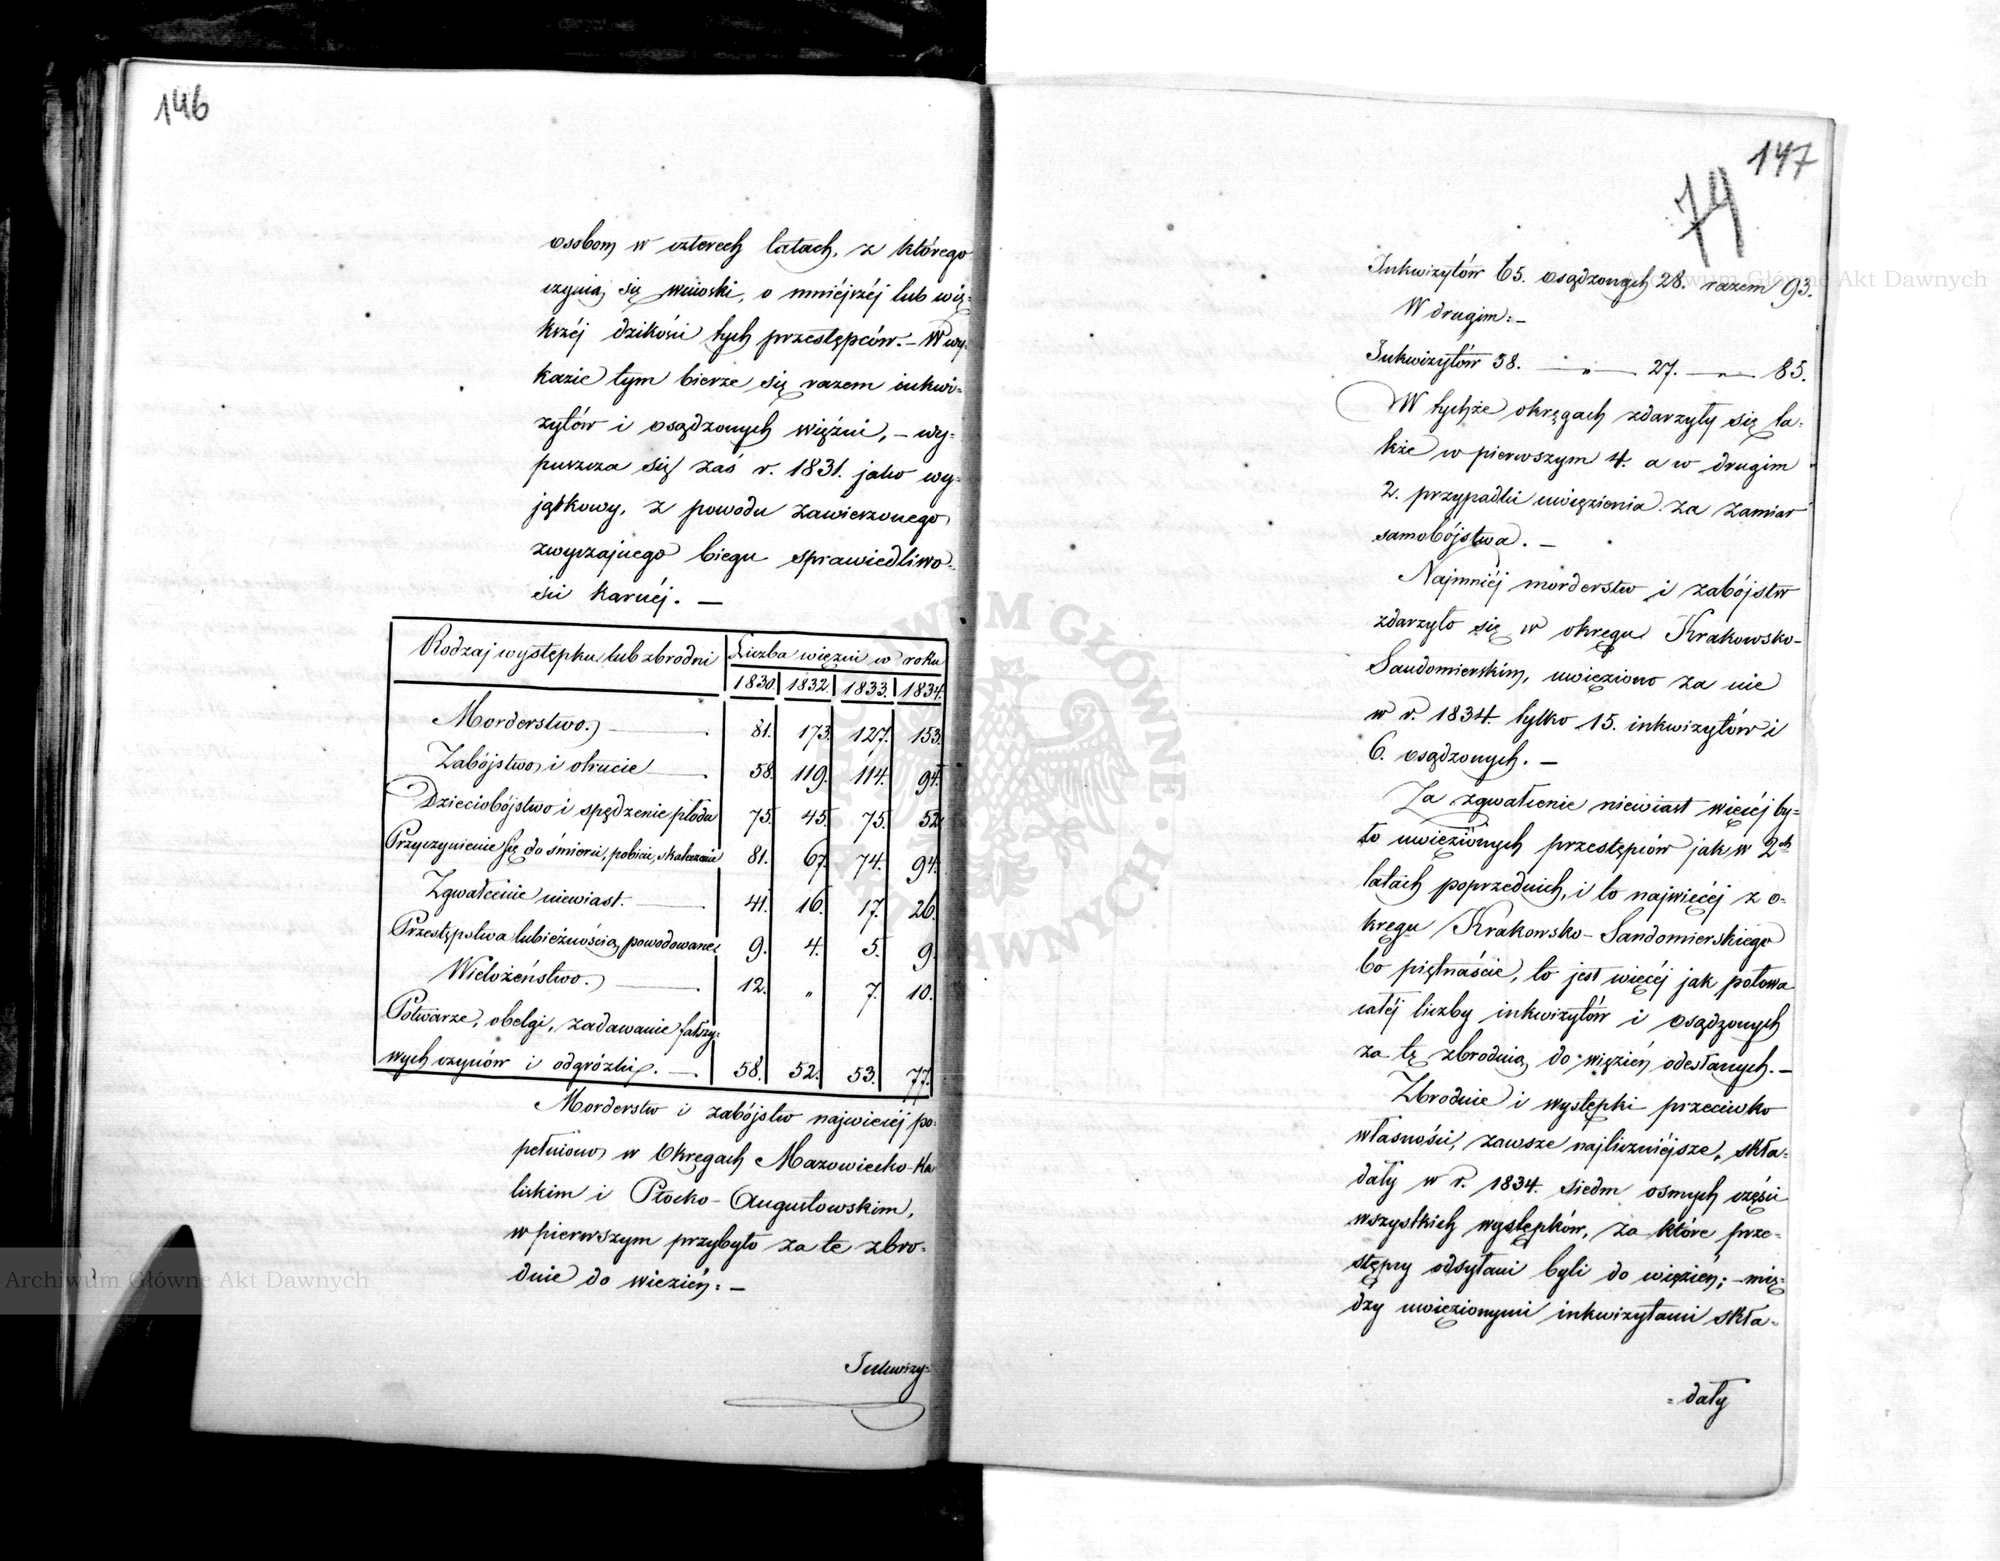 146
osobom w czterech latach, z którego
czynią się wnioski, o mniejszéj lub wię-
kszéj dzikości tych przestępców. – W wy-
kazie tym bierze się razem inkwi-
zytów i osądzonych więźni, – wy-
puszcza się zaś r. 1831. jako wy-
jątkowy, z powodu zawieszonego
zwyczajnego biegu sprawiedliwo-
ści karnéj. –
Rodzaj występku lub zbrodni Liczba więźni w roku
1830. 1832. 1833. 1834.
Morderstwo. 81. 173. 127. 153.
Zabójstwo i otrucie 58. 119. 114. 94.
Dzieciobójstwo i spędzenie płodu 75. 45. 75. 52.
Przyczynienie się do śmierci, pobicie, skaleczenie 81. 67. 74. 94.
Zgwałcenie niewiast. 41. 16. 17. 26.
Przestępstwa lubieżnością powodowane 9. 4. 5. 9.
Wielożeństwo. 12. „ 7. 10.
Potwarze, obelgi, zadawanie fałszy-
wych czynów i odgróżki. – 58. 52. 53. 77.
Morderstw i zabójstw najwięcéj po-
pełniono w Okręgach Mazowiecko-Ka
liskim i Płocko-Augustowskim,
w pierwszym przybyło za te zbro-
dnie do więzień: –
Inkwizy-
147
74
Inkwizytów 65. osądzonych 28. razem 93.
W drugim: –
Inkwizytów 58. — „ — 27. — „ — 85.
W tychże okręgach zdarzyły się ta-
kże w pierwszym 4. a w drugim
2. przypadki uwięzienia za zamiar
samobójstwa. –
Najmniéj morderstw i zabójstw
zdarzyło się w okręgu Krakowsko-
Sandomierskim, uwięziono za nie
w r. 1834. tylko 15. inkwizytów i
6. osądzonych. –
Za zgwałcenie niewiast więcéj by-
ło uwięzionych przestępców jak w 2ch
latach poprzednich, i to najwięcéj z o-
kręgu Krakowsko-Sandomierskiego
bo piętnaście, to jest więcéj jak połowa
całéj liczby inkwizytów i osądzonych
za tę zbrodnią do więzień odesłanych. –
Zbrodnie i występki przeciwko
własności, zawsze najliczniéjsze, skła-
dały w r. 1834. siedm ósmych części
wszystkich występków, za które prze-
stępcy odsyłani byli do więzień; – mię-
dzy uwięzionymi inkwizytami skła-
-dały
Archiwum Główne Akt Dawnych
Archiwum Główne Akt Dawnych
ARCHIWUM GŁÓWNE AKT DAWNYCH